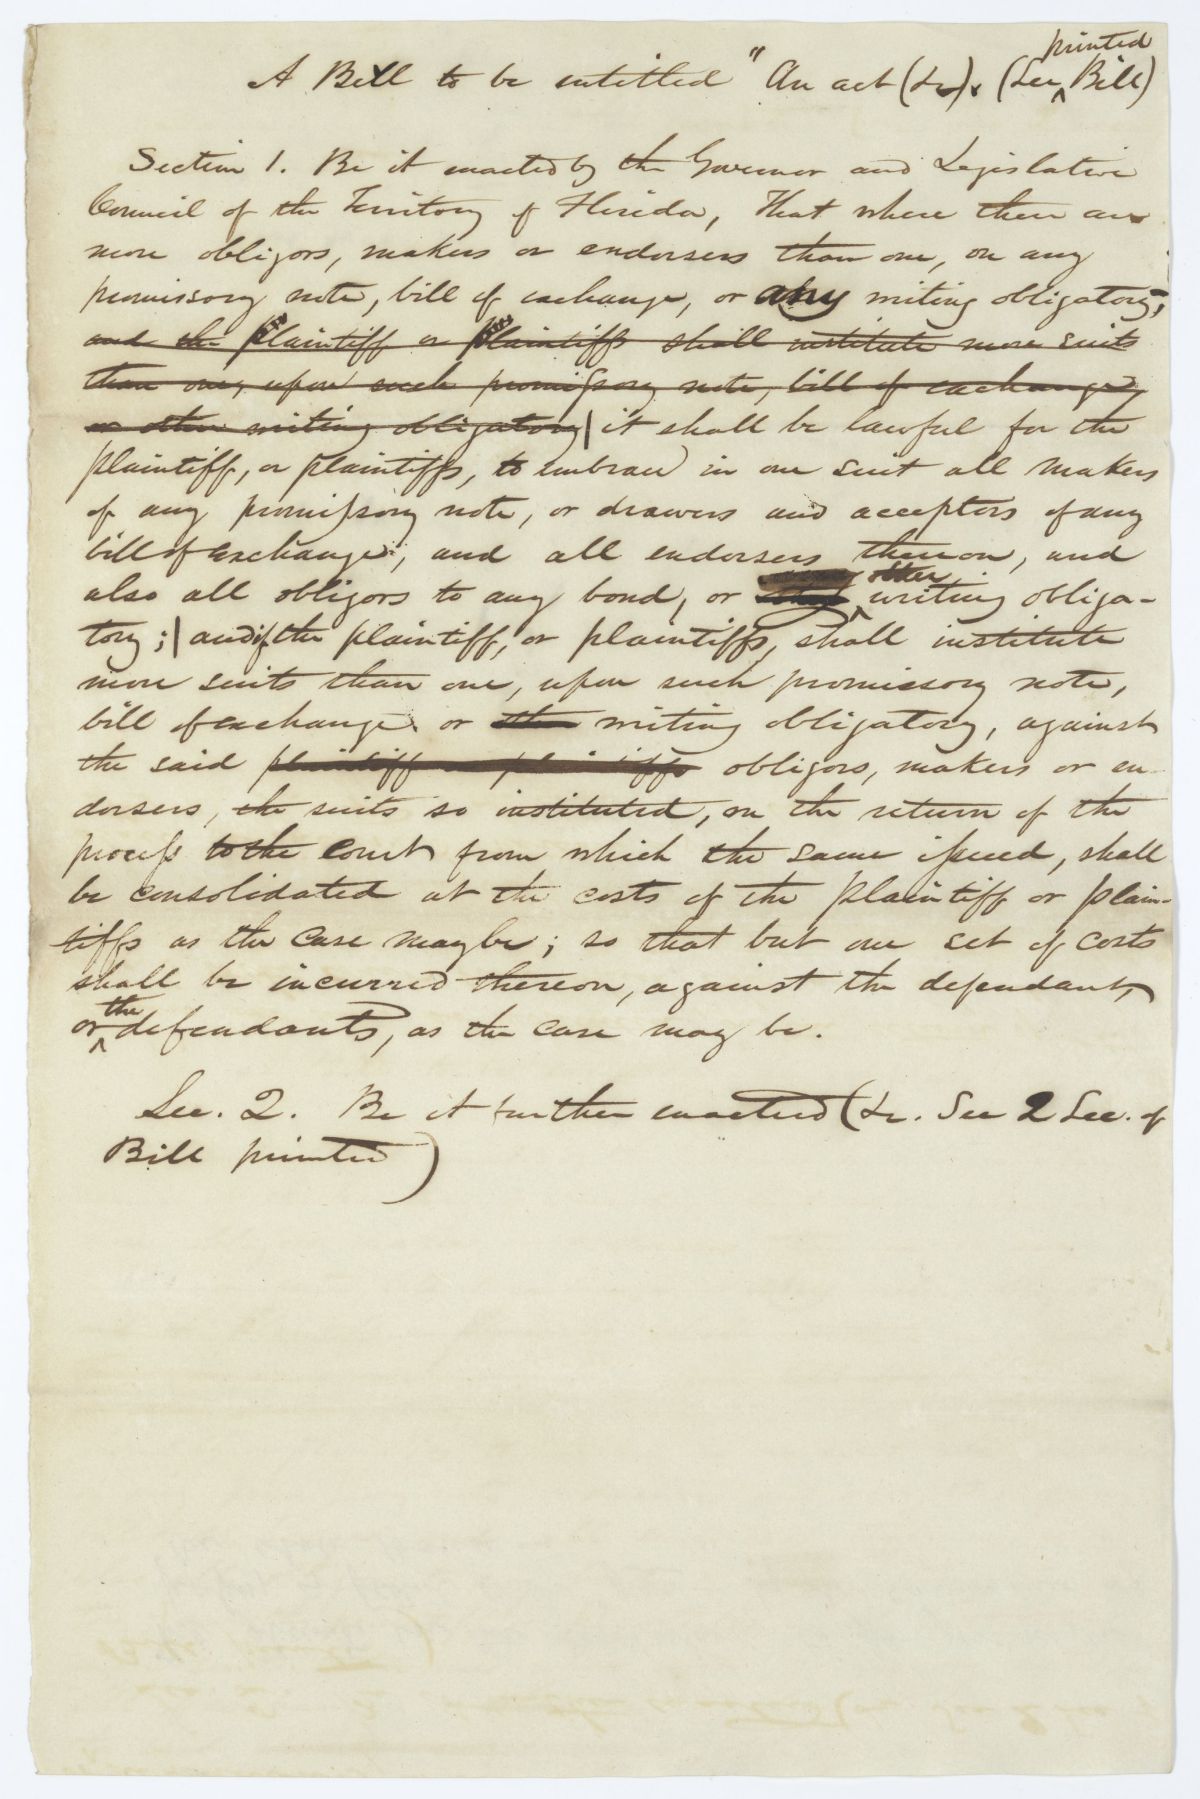 A Bill to be entitled "An act (&c). (See printed Bill)
Section 1. Be it enacted by the Governor and Legislative
Council of the Territory of Florida, That where there are
more obligors, makers or endorsers than one, on any
promissory note, bill of exchange, or any writing obligatory,
and the plaintiff or plaintiffs shall institute more suits
than one, upon such promissory note, bill of exchange,
or other writing obligatory it shall be lawful for the
plaintiff, or plaintiffs, to embrace in one suit all makers
of any promissory note, or drawers and acceptors of any
bill of exchange, and all endorsers thereon, and
also all obligors to any bond, or other writing obliga-
tory; and if the plaintiff, or plaintiffs, shall institute
more suits than one, upon such promissory note,
bill of exchange or writing obligatory, against
the said plaintiff or plaintiffs obligors, makers or en-
dorsers, the suits so instituted, on the return of the
process to the court from which the same issued, shall
be consolidated at the costs of the plaintiff or plain-
tiffs as the case may be; so that but one set of costs
shall be incurred thereon, against the defendant,
or the defendants, as the case may be.
Sec. 2. Be it further enacted (&c. See 2 Sec. of
Bill printed)